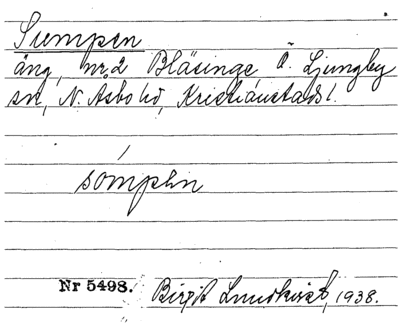 Sumpen
äng, nr 2 Bläsinge, Ö. Ljungby
sn, N. Åsbo hd, Kristianstads l.
sómpen
Nr 5498. Birgit Lundkvist, 1938.